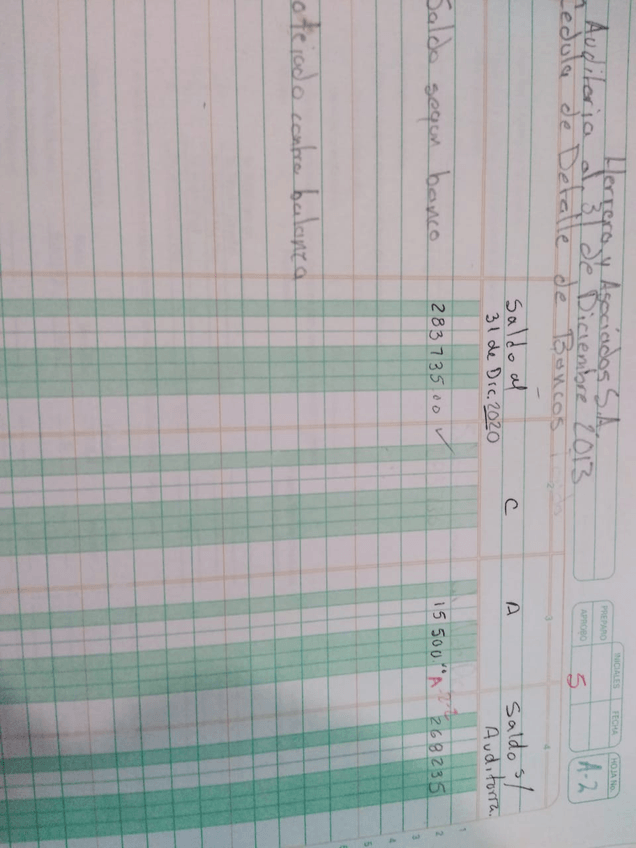 Herrera y Asociados S.A.
Auditoria al 31 de Diciembre 2013
Cedula de Detalle de Bancos
INICIALES FECHA HOJA No.
PREPARÓ
APROBÓ 5 A-2
1 2 3 4
Saldo al C A Saldo s/
31 de Dic. 2020 Auditoría.
Saldo segun banco 283735.00 ✓ 15500 A 268235
otejado contra balanza
1
2
3
4
5
6